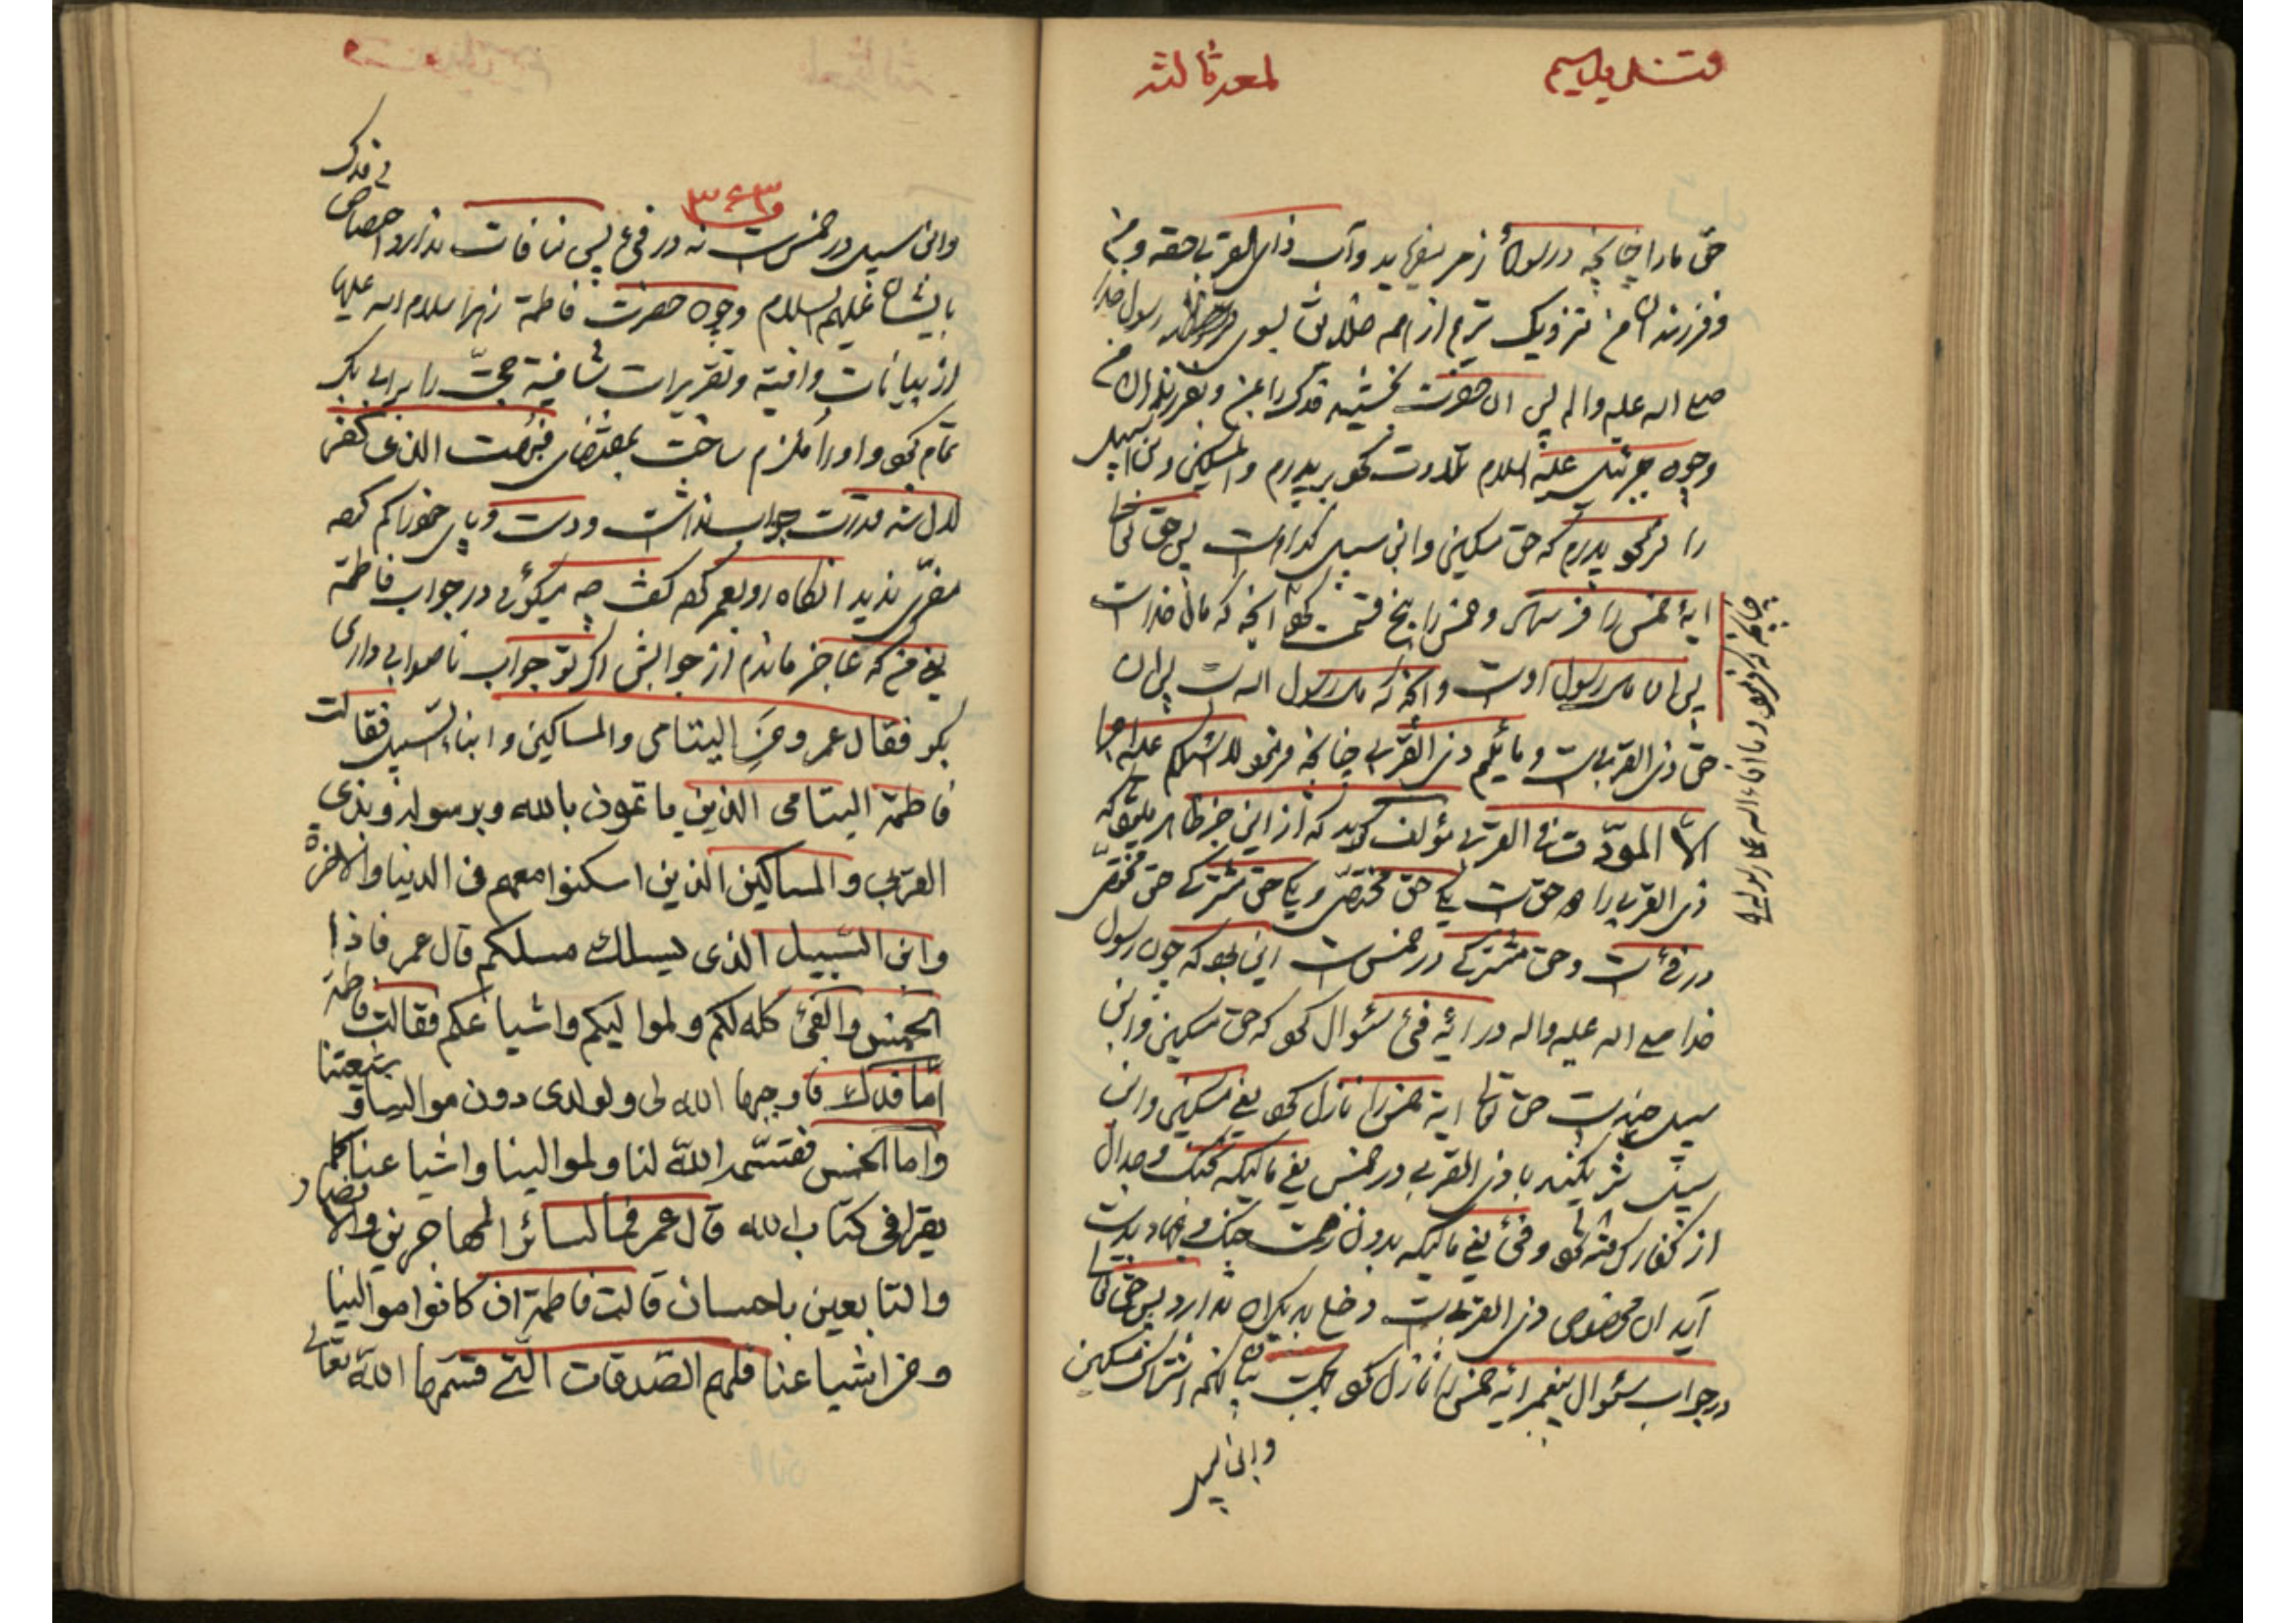 لمعه ثالثه
حق ما را چنانچه در سوره میفرماید وآت ذا القربی حقه و من
و فرزندان من نزدیک تریم از همه خلائق بسوی رسول خدا
صلی اله علیه و اله پس ان حضرت بخشید فدک را بمن و بفرزندان من
و چون جبرئیل علیه السلام تلاوت کرد بر پدرم والمسکین وابن السبیل
را فرمود پدرم که حق مسکین و ابن سبیل کدام است پس حق تعالی
ایه خمس را فرستاد و خمس را پنج قسمت کرد انچه که مال خداست
پس ان مال رسول اوست و انچه که مال رسول اله است پس ان
حق ذی القربی است و مائیم ذی القربی چنانچه فرمود لا اسئلکم علیه اجرا
الا المودة فی القربی مؤلف گوید که از این خبر ظاهر میشود که
ذی القربی را دو حق است یکی حق مختص و یکی حق مشترک حق مختص
در فئ است و حق مشترک در خمس است این بود که چون رسول
خدا صلی اله علیه واله در ایه فئ سئوال کرد که حق مسکین وابن
سبیل چیست حق تعالی ایه خمس را نازل کرد یعنی مسکین و ابن
سبیل شریکند با ذی القربی در خمس یعنی مالیکه بجنگ و جدال
از کفار گرفته شود و فئ یعنی مالیکه بدون زحمت جنگ و جهاد بدست
آید ان مخصوص ذی القربی است دخلی بدیگران ندارد پس حق تعالی
در جواب سئوال پیغمبر ایه خمس را نازل کرد بجهت اشتراک مسکین
وابن سبیل
چنانچه فرمود و ما افاء اله علی رسوله
۳۶۳
وابن سبیل در خمس است نه در فئ پس منافات ندارد اختصاص
فی فدک
بایشان علیهم السلام و چون حضرت فاطمة زهرا سلام اله علیها
از بیانات وافیة و تقریرات شافیة حجت را بر ابی بکر
تمام کرد و او را ملزم ساخت بمقتضای فبهت الذی کفر
لال شد قدرت جواب نداشت و دست و پای خود را گم کرده
مفری ندید انگاه رو بعمر کرده گفت چه میگوئی در جواب فاطمة
یعنی من که عاجز ماندم از جوابش اگر تو جواب ناصوابی داری
بگو فقال عمر ومن الیتامی والمساکین وابناء السبیل فقالت
فاطمة الیتامی الذین یاتمون بالله وبرسوله وبذی
القربی والمساکین الذین اسکنوا معهم فی الدنیا والاخرة
وابن السبیل الذی یسلک مسلکهم قال عمر فاذا
الخمس والفئ کله لکم ولموالیکم واشیاعکم فقالت فاطمة
أما فدک فاوجبها الله لی ولولدی دون موالینا وشیعتنا
واما الخمس فقسمه الله لنا ولموالینا واشیاعنا کما
یقرا فی کتاب الله قال عمر فما لسائر المهاجرین والانصار
والتابعین باحسان قالت فاطمة ان کانوا موالینا
ومن اشیاعنا فلهم الصدقات التی قسمها الله تعالی